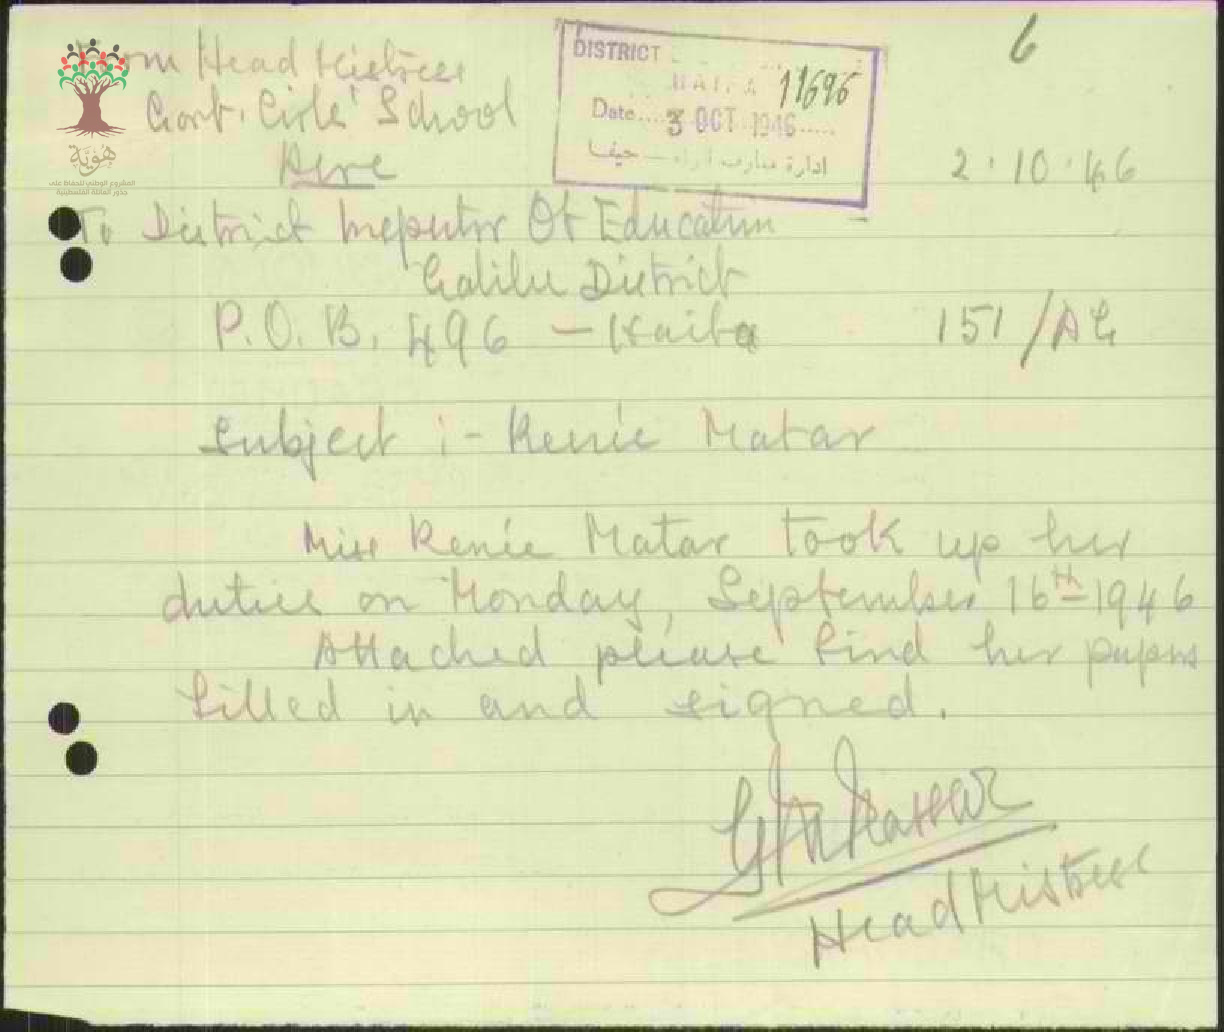 6
From Head Mistress
Govt. Girls' School
Acre
DISTRICT
HAIFA 11696
Date 3 OCT 1946
ادارة معارف لواء حيفا
هُوِيَّة
المشروع الوطني للحفاظ على
جذور العائلة الفلسطينية
2.10.46
To District Inspector Of Education
Galilee District
P.O.B. 496 – Haifa
151/AG
Subject :- Renée Matar
Miss Renée Matar took up her
duties on Monday, September 16th 1946
Attached please find her papers
filled in and signed.
Head Mistress